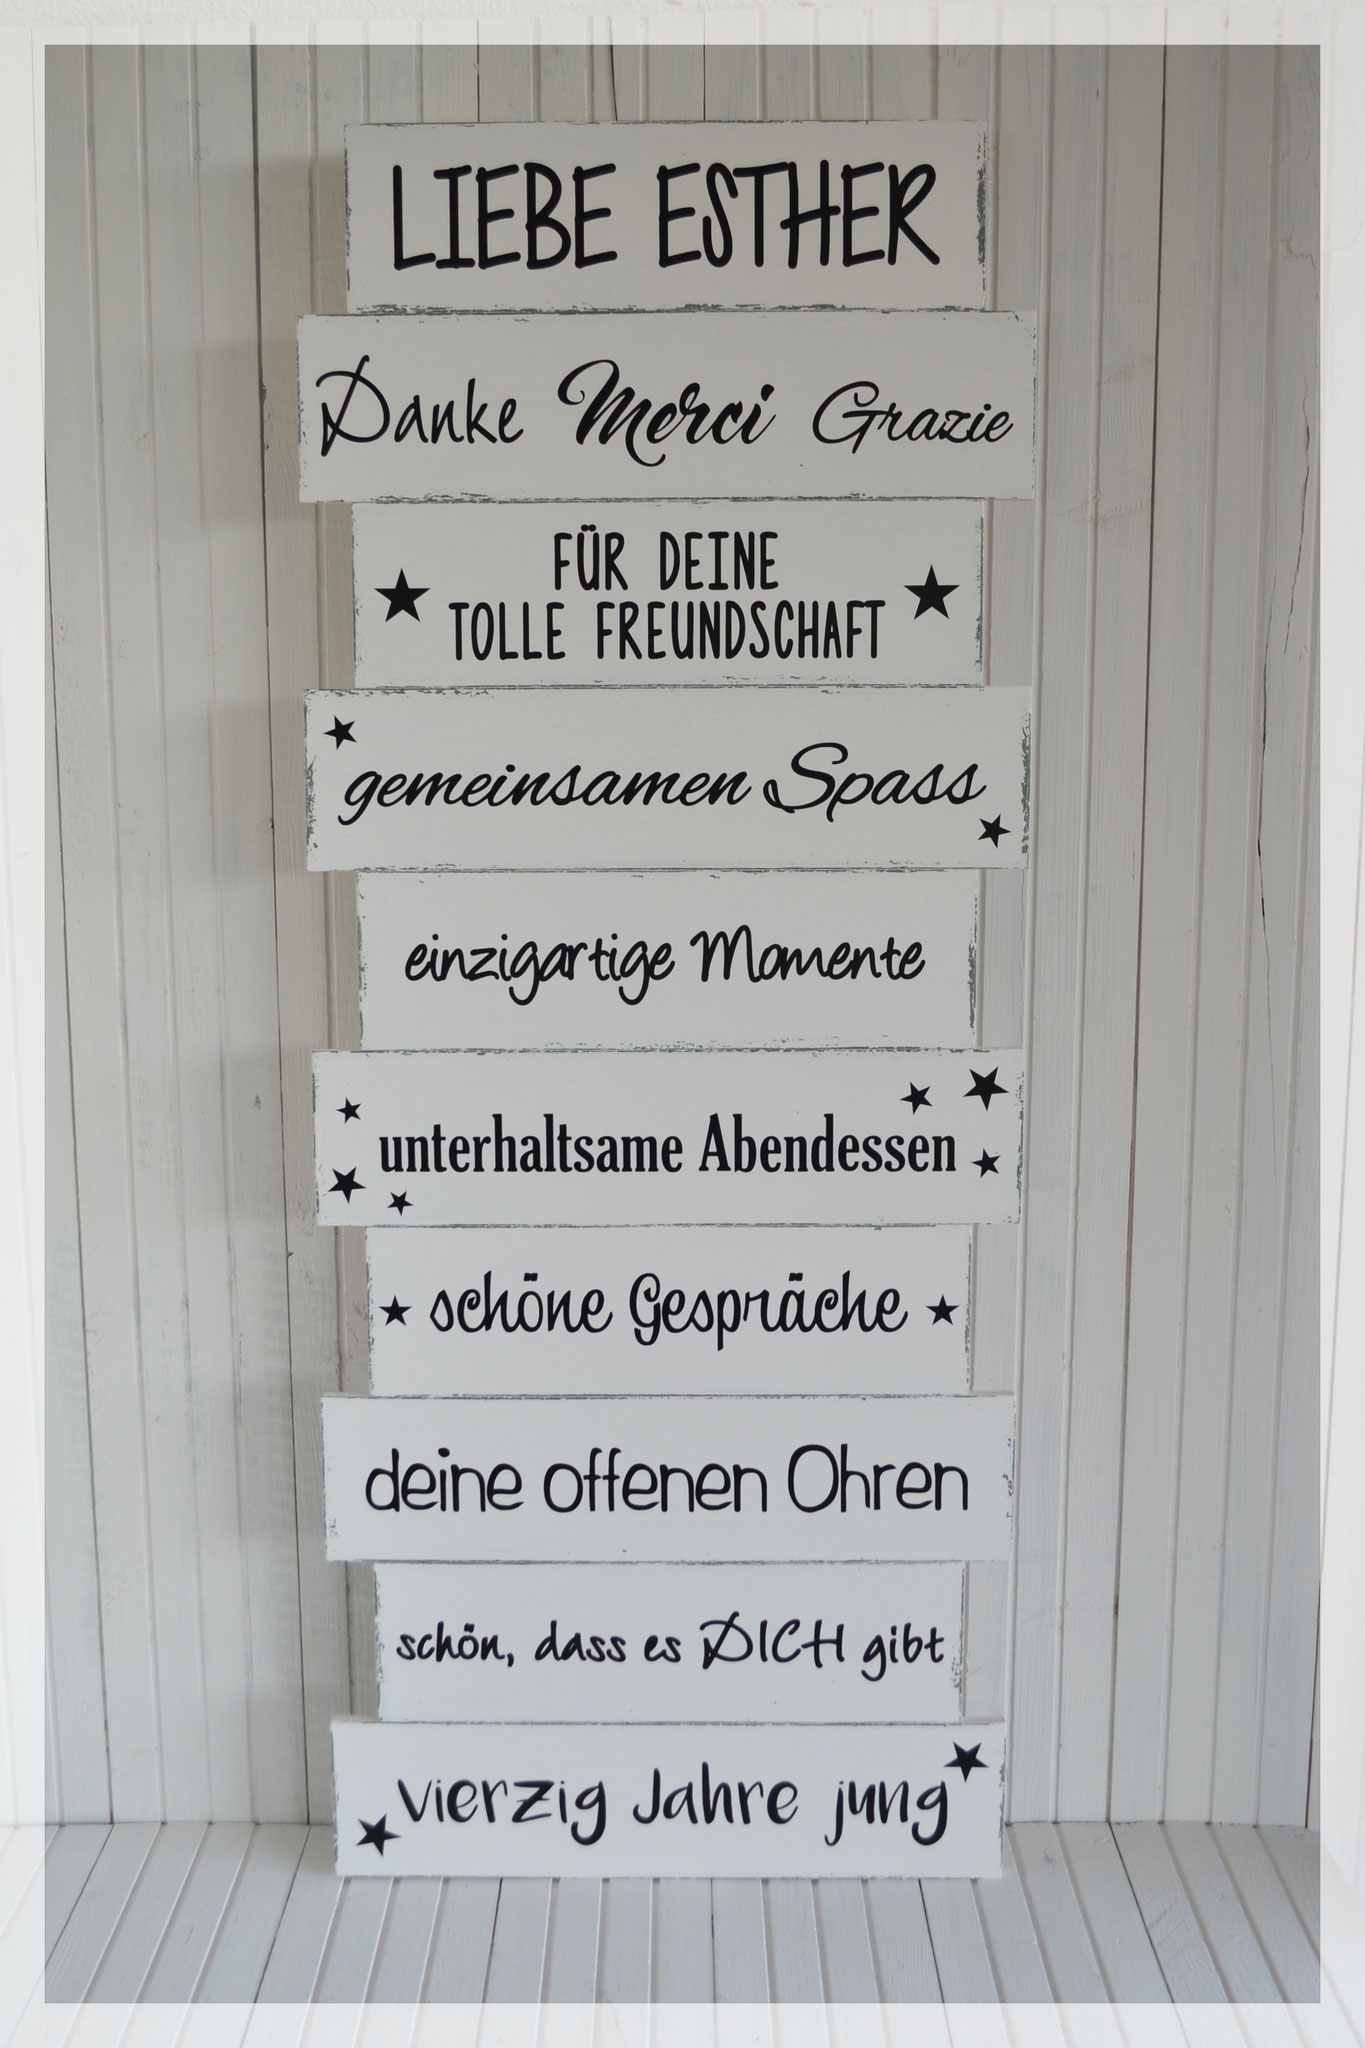 LIEBE ESTHER
Danke Merci Grazie
FÜR DEINE
TOLLE FREUNDSCHAFT
gemeinsamen Spass
einzigartige Momente
unterhaltsame Abendessen
schöne Gespräche
deine offenen Ohren
schön, dass es DICH gibt
vierzig Jahre jung